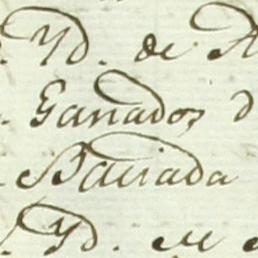 Yd. de A
Ganados d
Baciada
Yd.